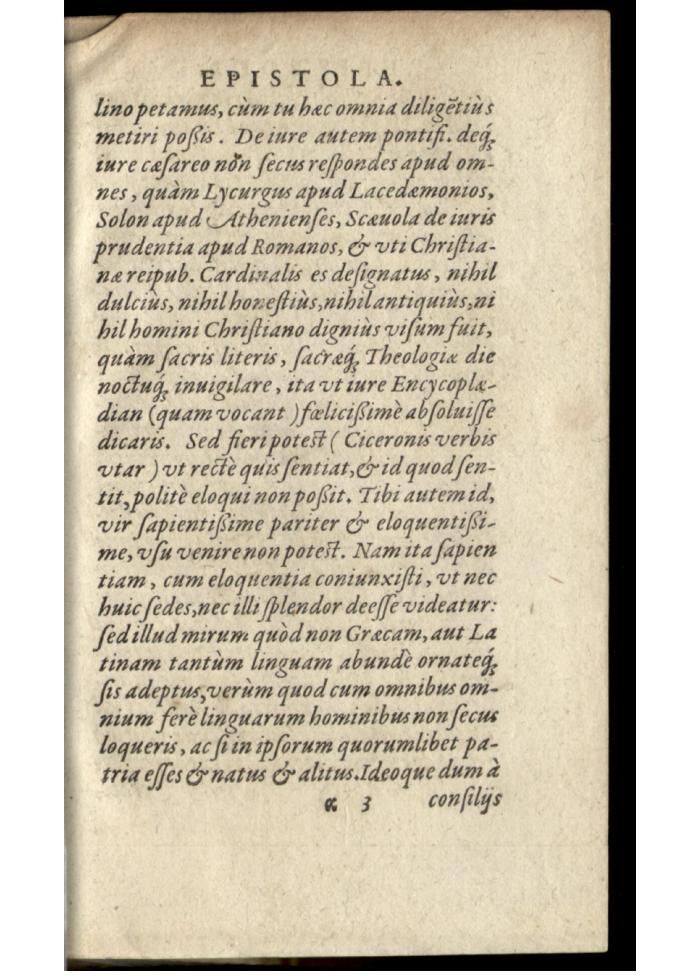 EPISTOLA.
lino petamus, cùm tu hæc omnia diligẽtiùs
metiri poßis. De iure autem pontifi. deq́;
iure cæsareo nõn ſecus reſpondes apud om-
nes, quàm Lycurgus apud Lacedæmonios,
Solon apud Athenienſes, Scæuola de iuris
prudentia apud Romanos, & vti Chriſtia-
næ reipub. Cardinalis es deſignatus, nihil
dulciùs, nihil honeſtiùs, nihil antiquiùs, ni
hil homini Chriſtiano digniùs viſum fuit,
quàm ſacris literis, ſacræq́; Theologiæ die
noctuq́; inuigilare, ita vt iure Encycoplæ-
dian (quam vocant) fœlicißimè abſoluiſſe
dicaris. Sed fieri poteſt (Ciceronis verbis
vtar) vt rectè quis ſentiat, & id quod ſen-
tit, politè eloqui non poßit. Tibi autem id,
vir ſapientißime pariter & eloquentißi-
me, vſu venire non poteſt. Nam ita ſapien
tiam, cum eloquentia coniunxiſti, vt nec
huic ſedes, nec illi ſplendor deeſſe videatur:
ſed illud mirum quòd non Græcam, aut La
tinam tantùm linguam abundè ornateq́;
ſis adeptus, verùm quod cum omnibus om-
nium ferè linguarum hominibus non ſecus
loqueris, ac ſi in ipſorum quorumlibet pa-
tria eſſes & natus & alitus. Ideoque dum à
α 3 conſilijs